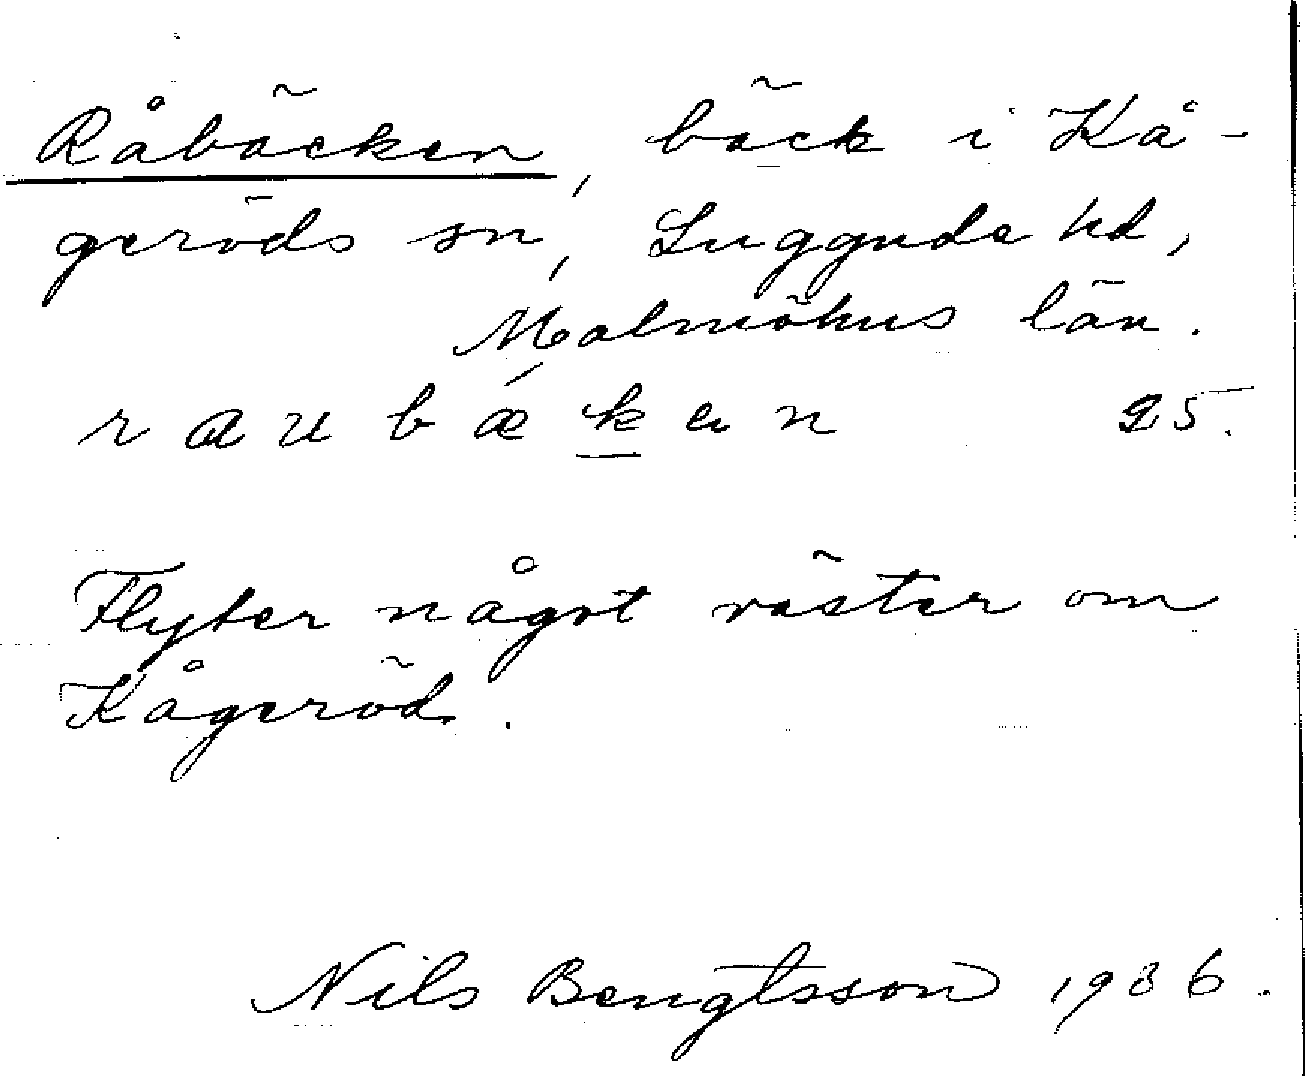 Råbäcken, bäck i Kå-
geröds sn, Luggude hd,
Malmöhus län.
r a u b ǽ k e n 25.
Flyter något väster om
Kågeröd.
Nils Bengtsson 1936.